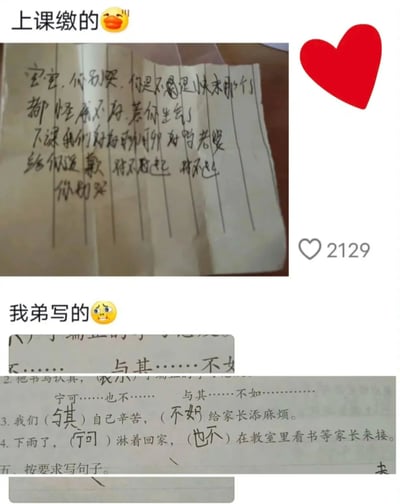 上课缴的
宝宝,你别哭,你是不是快来那个了
都怪我不好,惹你生气了
下课我们好好聊聊好吗老婆
给你道歉 对不起 对不起
你别哭
2129
我弟写的
与其……不如
2. 他书写认真,
宁可……也不…… 与其……不如…………
3. 我们(与其)自己辛苦,(不如)给家长添麻烦。
4. 下雨了,(宁可)淋着回家,(也不)在教室里看书等家长来接。
五、按要求写句子。